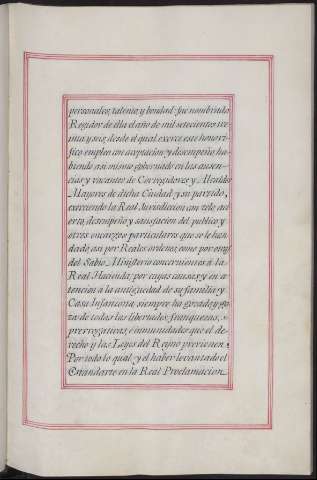 personales, talento, y bondad, fue nombrado
Regidor de ella el año de mil setecientos tre
inta y seis, desde el qual exerce este honori-
fico empleo con aceptacion y desempeño, ha-
biendo asi mismo gobernado en las ausen-
cias y vacantes de Corregidores y Alcaldes
Mayores de dicha Ciudad, y su partido,
exerciendo la Real Jurisdiccion con zelo, aci-
erto, desempeño, y satisfaccion del publico, y
otros encargos particulares que se le han
dado, asi por Reales ordenes, como por otras
del Sabio Ministerio concernientes à la
Real Hacienda; por cuyas causas, y en a-
tencion à la antiguedad de su familia y
Casa Infanzona, siempre ha gozado, y go-
za de todas las libertades, franquezas,
prerrogativas, è inmunidades que el de-
recho y las Leyes del Reyno previenen:
Por todo lo qual, y el haber levantado el
Estandarte en la Real Proclamacion